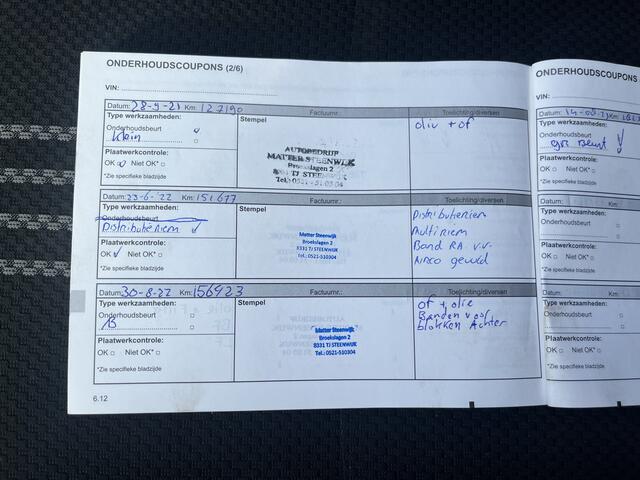 ONDERHOUDSCOUPONS (2/6)
VIN:
Datum: 28-9-21 Km: 127190 Factuurnr.: Toelichting/diversen
Type werkzaamheden: Stempel
Onderhoudsbeurt
Klein
oliu + of
Plaatwerkcontrole:
OK Niet OK*
*Zie specifieke bladzijde
AUTOBEDRIJF
MATTER STEENWIJK
Broekslagen 2
8331 TJ STEENWIJK
Tel.: 0521 - 51 03 04
Datum: 23-6-'22 Km: 151.677 Factuurnr.: Toelichting/diversen
Type werkzaamheden: Stempel
Onderhoudsbeurt
Distributieriem
Plaatwerkcontrole:
OK Niet OK*
*Zie specifieke bladzijde
Matter Steenwijk
Broekslagen 2
8331 TJ STEENWIJK
Tel.: 0521-510304
Distributieriem
Multiriem
Band RA v.v.
Airco gevuld
Datum: 30-8-22 Km: 156923 Factuurnr.: Toelichting/diversen
Type werkzaamheden: Stempel
Onderhoudsbeurt
B
Plaatwerkcontrole:
OK Niet OK*
*Zie specifieke bladzijde
Matter Steenwijk
Broekslagen 2
8331 TJ STEENWIJK
Tel.: 0521-510304
of + olie
Banden voor
blokken Achter
6.12
ONDERHOUDSCOUPONS
VIN:
Datum:
Type werkzaamheden:
Onderhoudsbeurt
gr. Beurt
Plaatwerkcontrole:
OK Niet OK*
*Zie specifieke bladzijde
Datum:
Type werkzaamheden:
Onderhoudsbeurt
Plaatwerkcontrole:
OK Niet OK*
*Zie specifieke bladzijde
Datum:
Type werkzaamheden:
Onderhoudsbeurt
Plaatwerkcontrole:
OK Niet OK*
*Zie specifieke bladzijde